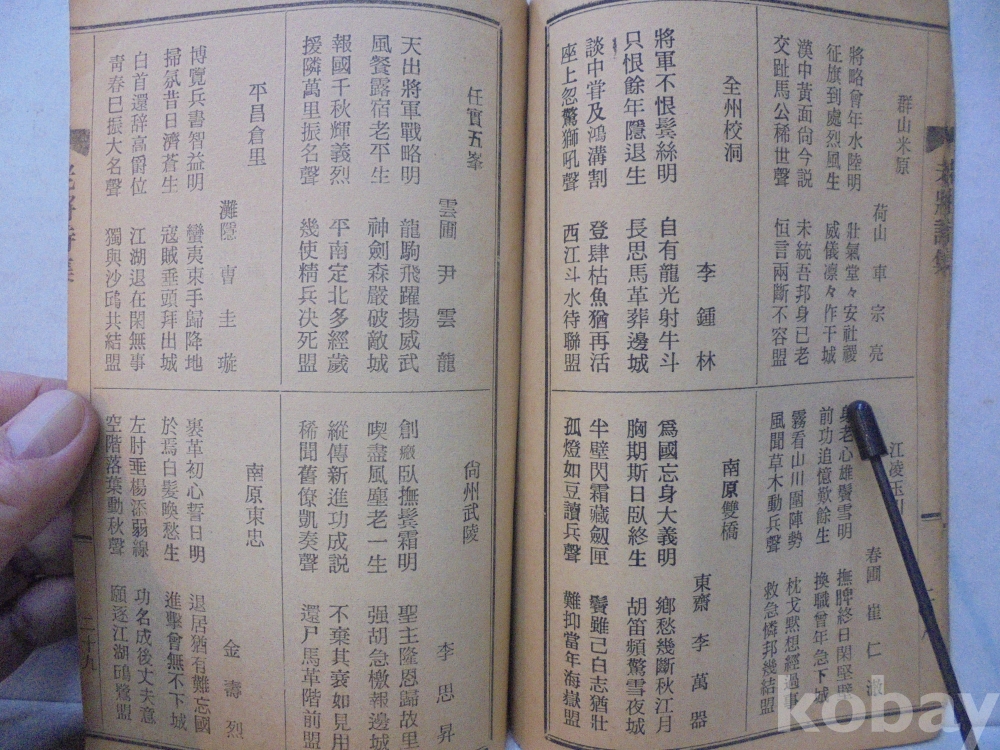 老將詩集
群山米原
荷山 車宗亮
將略曾年水陸明 壯氣堂々安社稷
征旗到處烈風生 威儀凛々作干城
漢中黃面尙今説 未統吾邦身已老
交趾馬公稀世聲 恒言兩斷不容盟
全州校洞
李鍾林
將軍不恨鬂絲明 自有龍光射牛斗
只恨餘年隱退生 長思馬革葬邊城
談中甞及鴻溝割 登肆枯魚猶再活
座上忽驚獅吼聲 西江斗水待聯盟
江凌玉
春圃 崔仁
老心雄鬢雪明 撫脾終日閑堅壁
前功追憶歎餘生 換職曾年急下城
霧看山川圍陣勢 枕戈黙想經過事
風聞草木動兵聲 救急憐邦幾結盟
南原雙橋
東齋 李萬器
爲國忘身大義明 鄕愁幾斷秋江月
胸期斯日臥終生 胡笛頻驚雪夜城
半壁閃霜藏劔匣 鬢雖己白志猶壯
孤燈如豆讀兵聲 難抑當年海嶽盟
任實五峯
雲圃 尹雲龍
天出將軍戰略明 龍駒飛躍揚威武
風餐露宿老平生 神劍森嚴破敵城
報國千秋輝義烈 平南定北多經歲
援隣萬里振名聲 幾使精兵决死盟
平昌倉里
灘隱 曺圭璇
博覽兵書智益明 蠻夷束手歸降地
掃氛昔日濟蒼生 寇賊垂頭拜出城
白首還辞高爵位 江湖退在閑無事
靑春巳振大名聲 獨與沙鷗共結盟
尙州武陵
李思昇
創瘢臥撫鬂霜明 聖主隆恩歸故里
喫盡風塵老一生 强胡急檄報邊城
縱傳新進功成説 不棄其衰如見用
稀聞舊僚凱奏聲 還尸馬革階前盟
南原東忠
金壽烈
裹革初心誓日明 退居猶有難忘國
於焉白髮喚愁生 進擊曾無不下城
左肘垂楊添弱線 功名成後丈夫意
空階落葉動秋聲 願逐江湖鷗鷺盟
二十九